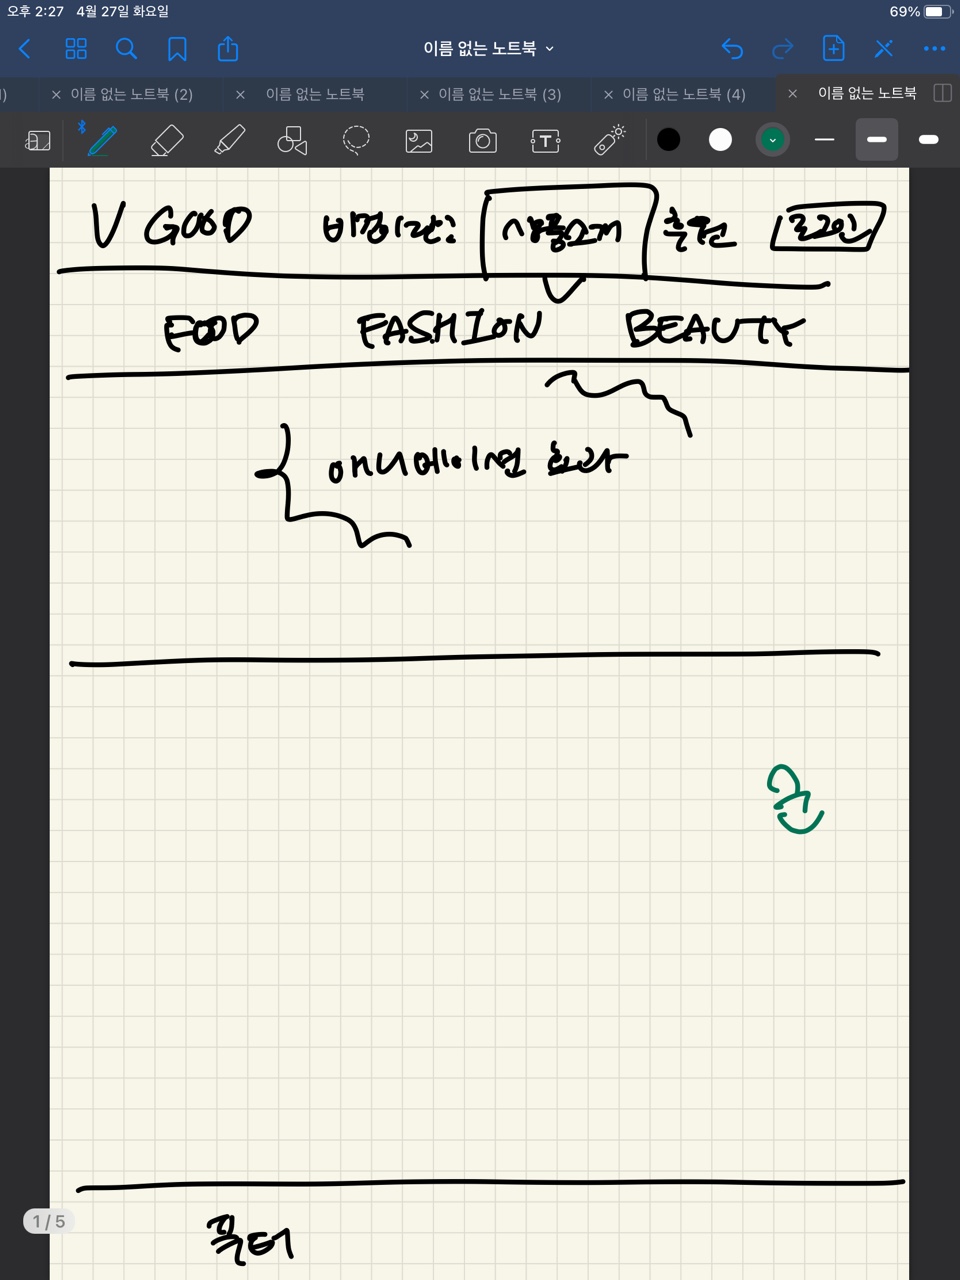 오후 2:27 4월 27일 화요일 69%
이름 없는 노트북
이름 없는 노트북 (2) 이름 없는 노트북 이름 없는 노트북 (3) 이름 없는 노트북 (4) 이름 없는 노트북
T
V GOOD 비건이란? 상품소개 후원 로그인
FOOD FASHION BEAUTY
애니메이션 효과
1 / 5
푸터